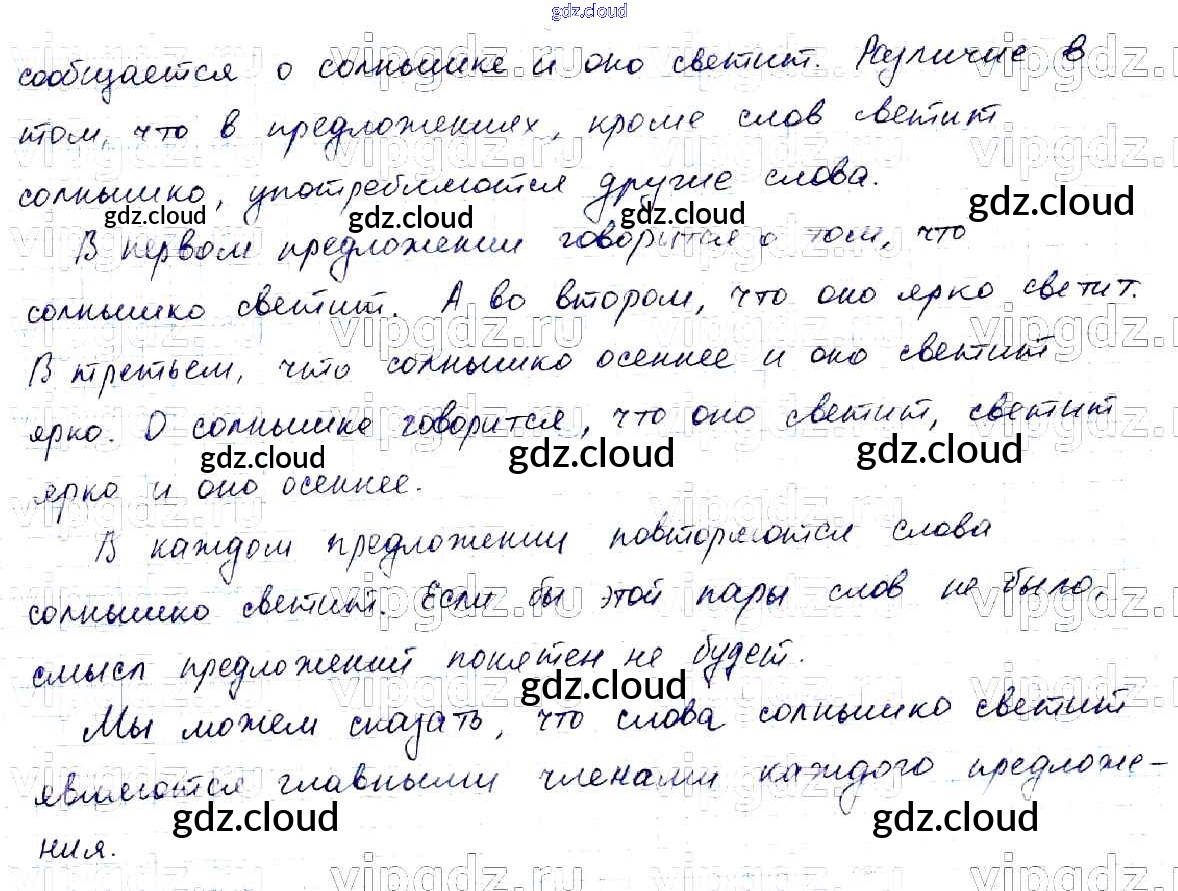 gdz.cloud
сообщается о солнышке и оно светит. Различие в
том, что в предложениях, кроме слов светит
солнышко, употребляются другие слова.
gdz.cloud gdz.cloud gdz.cloud gdz.cloud
В первом предложении говорится о том, что
солнышко светит. А во втором, что оно ярко светит.
В третьем, что солнышко осеннее и оно светит
ярко. О солнышке говорится, что оно светит, светит
gdz.cloud gdz.cloud gdz.cloud
ярко и оно осеннее.
В каждом предложении повторяются слова
солнышко светит. Если бы этой пары слов не было,
смысл предложений понятен не будет.
gdz.cloud
Мы можем сказать, что слова солнышко светит
являются главными членами каждого предложе-
gdz.cloud gdz.cloud
ния.